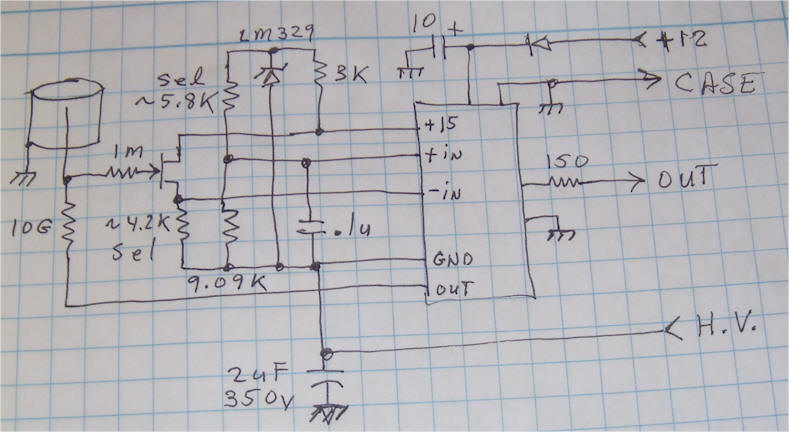 LM329
10
+
+12
sel
~5.8K
3K
CASE
+15
1m
+in
150
OUT
-in
10G
~4.2K
sel
.1u
GND
9.09K
OUT
H.V.
2uF
350v